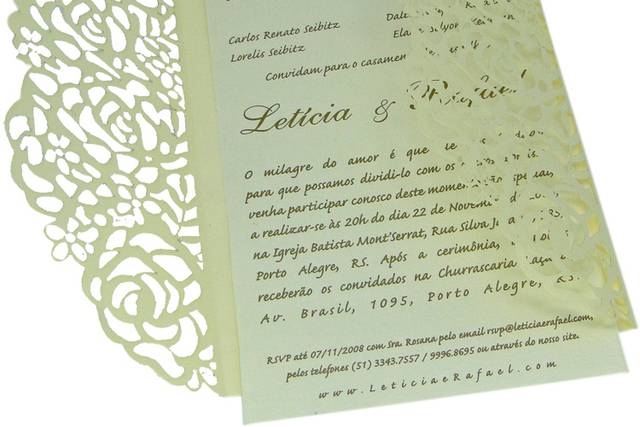 Carlos Renato Seibitz
Lorelis Seibitz
Convidam para o casamen
Letícia & Rafael
O milagre do amor é que
para que possamos dividi-lo com os
venha participar conosco deste momen
a realizar-se às 20h do dia 22 de Novem
na Igreja Batista Mont'Serrat, Rua Silva
Porto Alegre, RS. Após a cerimônia,
receberão os convidados na Churrascaria
Av. Brasil, 1095, Porto Alegre, RS.
RSVP até 07/11/2008 com Sra. Rosana pelo email rsvp@leticiaerafael.com,
pelos telefones (51) 3343.7557 / 9996.8695 ou através do nosso site.
www.LeticiaeRafael.com